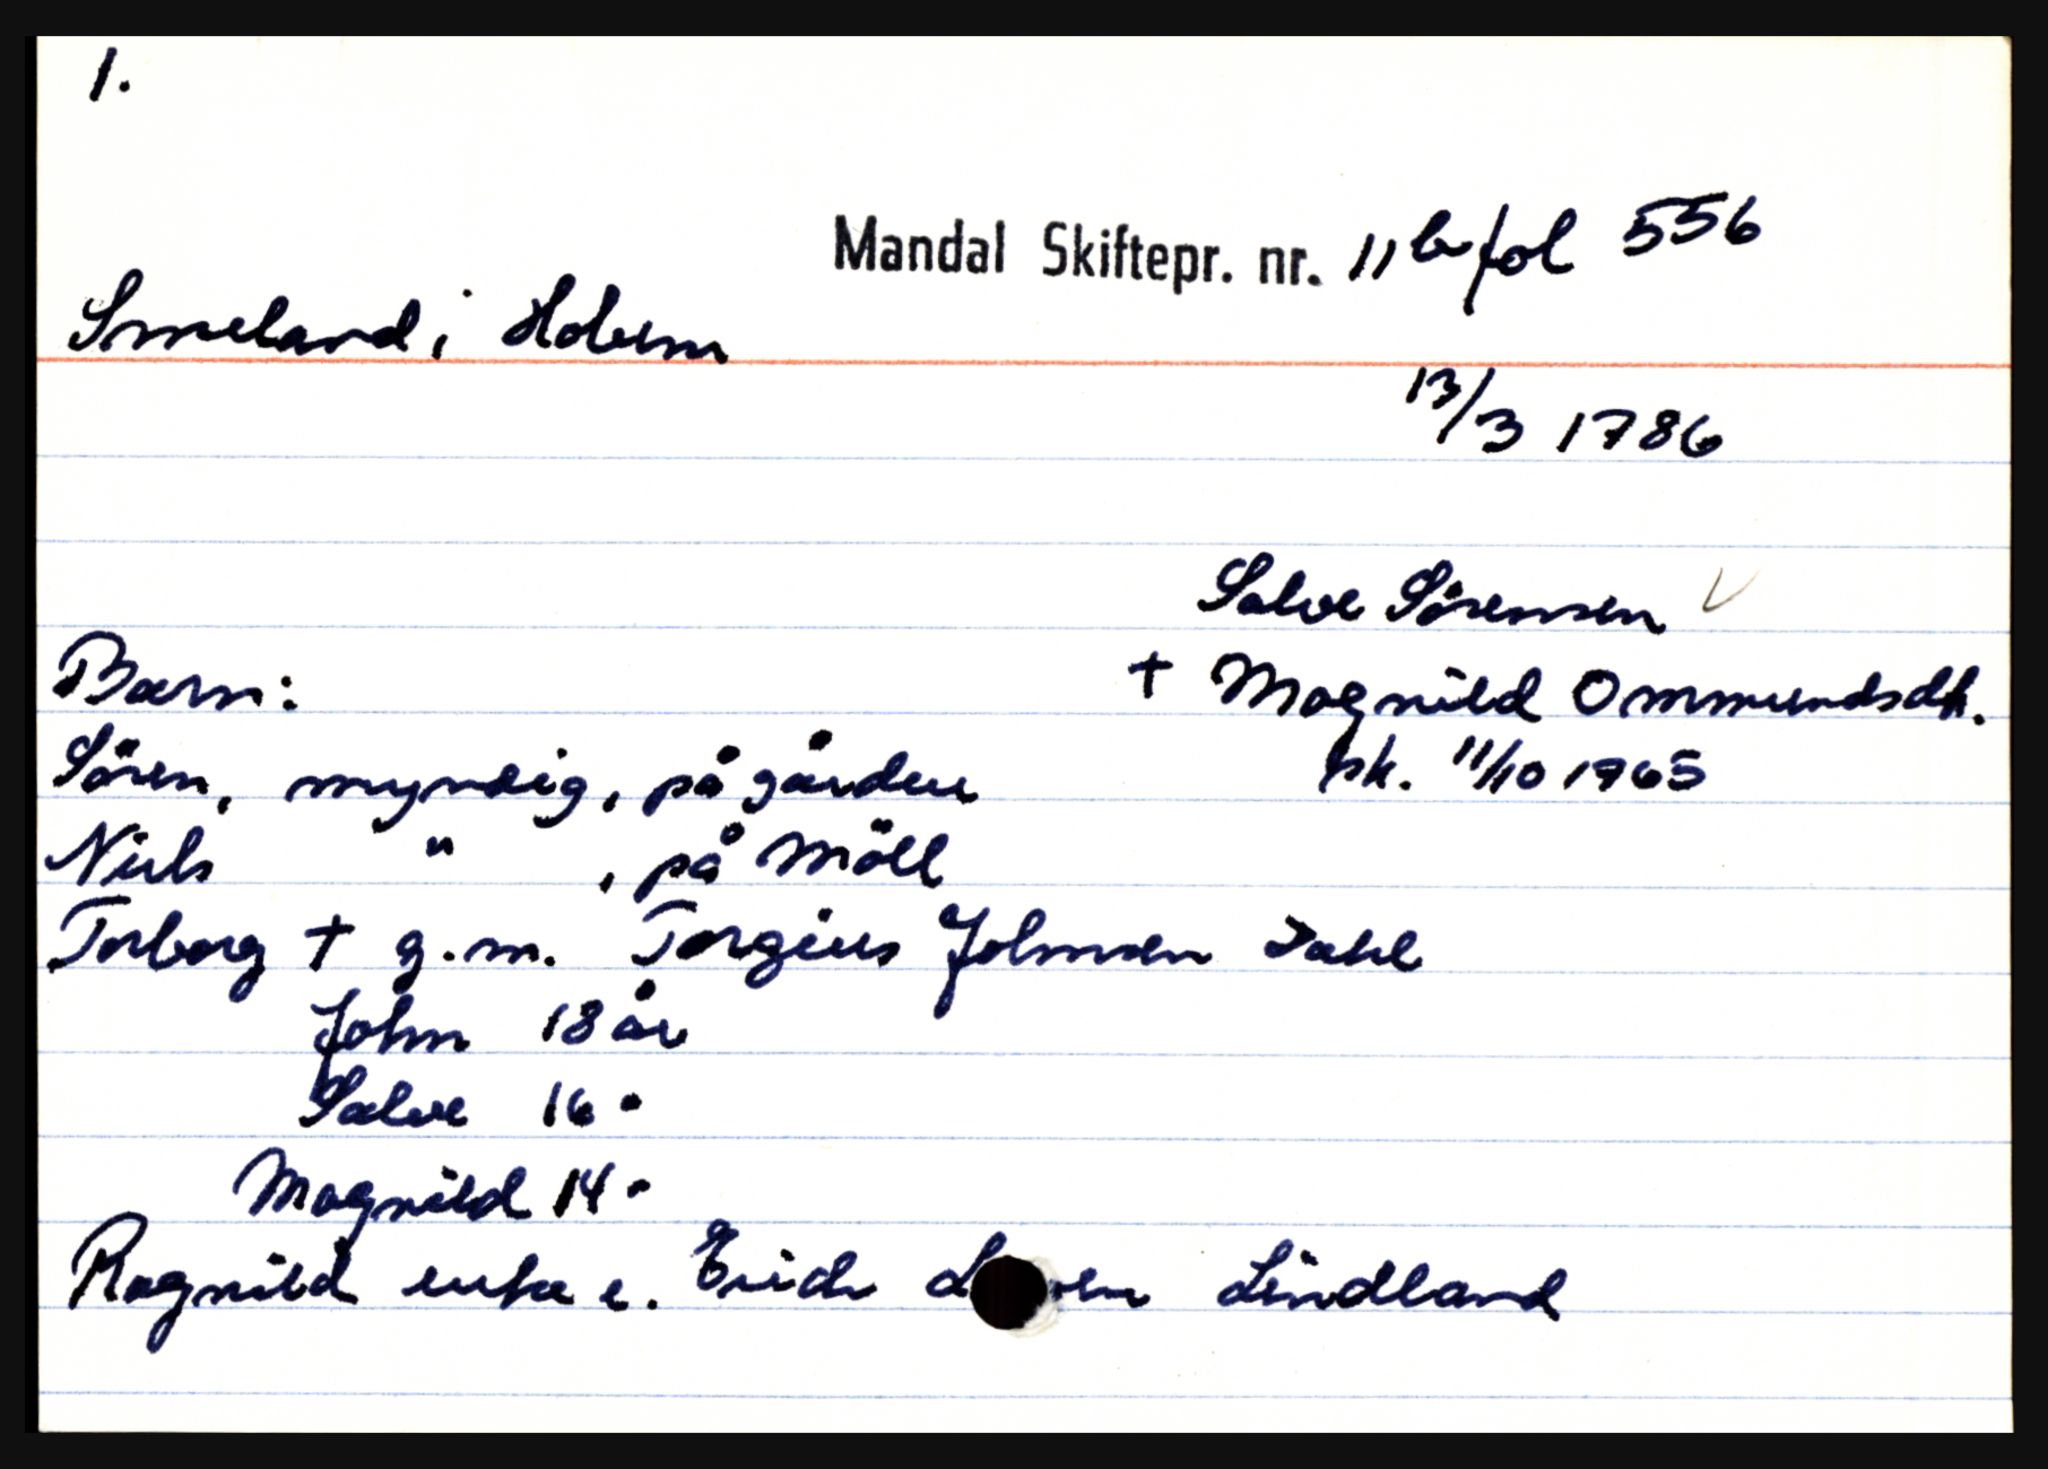 1.
Mandal Skiftepr. nr. 11 b fol 556
Smeland i Holum
13/3 1786
Salve Sørensen
Barn: † Magnild Ommundsdt.
Sören, myndig, på gården sk. 11/10 1765
Niels " , på Möll
Torborg † g.m. Torgius Johnsen Dahl
John 18 år
Salve 16 "
Magnild 14 "
Ragnild enke e. Erich Lindland